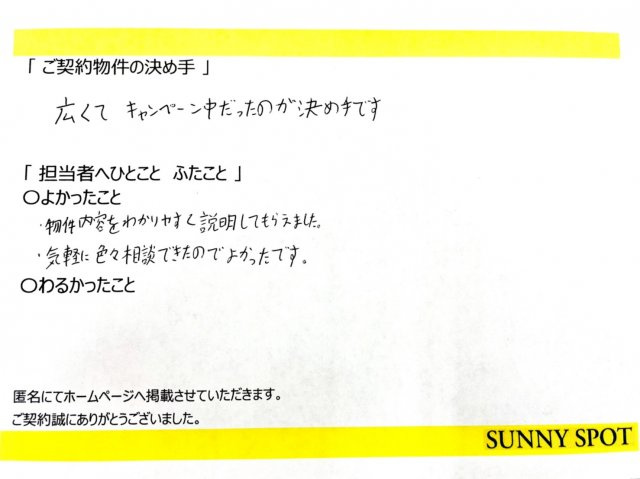 「 ご契約物件の決め手 」
広くて キャンペーン中だったのが決め手です
「 担当者へひとこと ふたこと 」
〇よかったこと
・物件内容をわかりやすく説明してもらえました。
・気軽に色々相談できたのでよかったです。
〇わるかったこと
匿名にてホームページへ掲載させていただきます。
ご契約誠にありがとうございました。
SUNNY SPOT